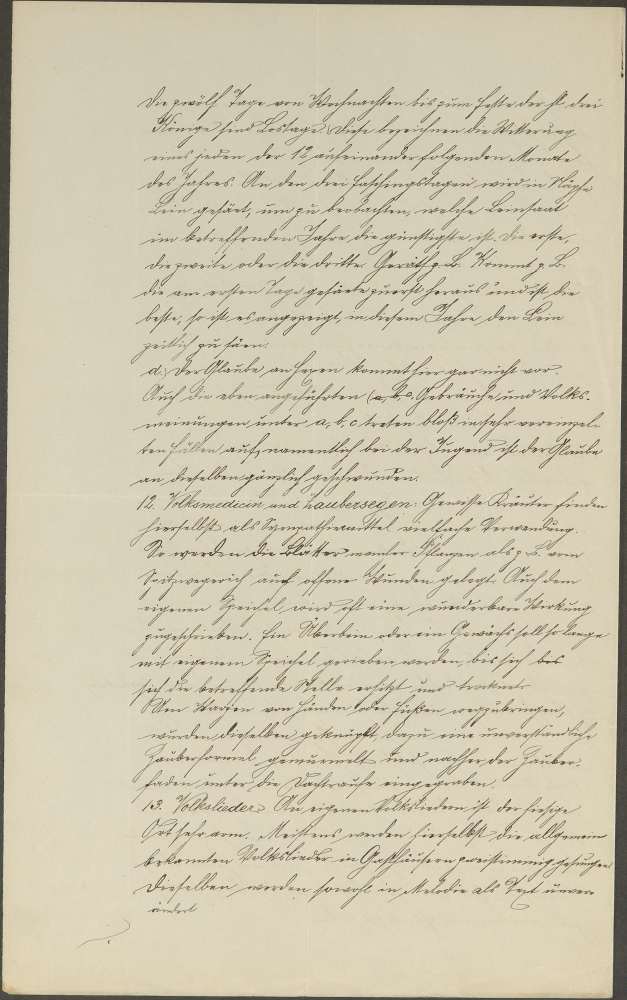 Die zwölf Tage von Weihnachten bis zum Feste der hl. drei
Könige sind Lostage. Diese bezeichnen die Witterung
eines jeden der 12 aufeinander folgenden Monate
des Jahres. An den drei Faschingstagen wird in Näpfe
Lein gesäet, um zu beobachten, welche Leinsaat
im betreffenden Jahre die günstigste ist. Die erste,
die zweite oder die dritte. Geräth z. B. Kommt z. B.
die am ersten Tage gesäete zuerst heraus und ist die
beste, so ist es angezeigt, in diesem Jahre den Lein
zeitlich zu säen.
d. Der Glaube an Hexen kommt hier gar nicht vor.
Auch die eben angeführten (a, b, c) Gebräuche und Volks-
meinungen unter a, b, c treten bloß in sehr vereinzel-
ten Fällen auf, namentlich bei der Jugend ist der Glaube
an dieselben gänzlich geschwunden.
12. Volksmedicin und Zaubersegen: Gewisse Kräuter finden
hierselbst als Sympathiemittel vielfache Verwendung.
So werden die Blätter mancher Pflanzen als z. B. vom
Spitzwegerich auf offene Wunden gelegt. Auch dem
eigenen Speichel wird oft eine wunderbare Wirkung
zugeschrieben. Ein Überbein oder ein Gewächs soll so lange
mit eigenem Speichel gerieben werden, bis sich bei
sich die betreffende Stelle erhitzt und trocknet.
Um Warzen von Händen oder Füßen wegzubringen,
wurden dieselben geknüpft, dazu eine unverständliche
Zauberformel gemurmelt und nachher der Zauber-
faden unter die Dachtraufe eingegraben.
13. Volkslieder. An eigenen Volksliedern ist der hiesige
Ort sehr arm. Meistens werden hierselbst die allgemein
bekannten Volkslieder in Gasthäusern zweistimmig gesungen
Dieselben werden sowohl in Melodie als Text unver-
ändert